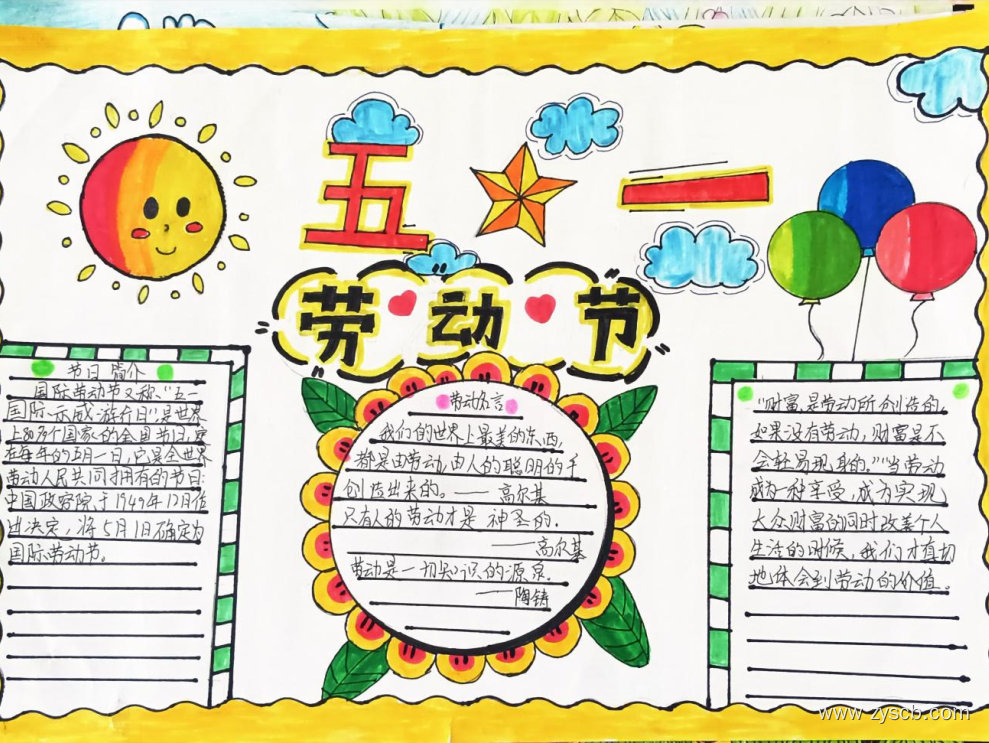 五一
劳动节
节日简介
国际劳动节又称“五一
国际示威游行日”是世界
上80多个国家的全国节日，定
在每年的五月一日，它是全世界
劳动人民共同拥有的节日
中国政务院于1949年12月作
出决定，将5月1日确定为
国际劳动节。
劳动名言
我们的世界上最美的东西，
都是由劳动，由人的聪明的手
创造出来的。——高尔基
只有人的劳动才是神圣的。
——高尔基
劳动是一切知识的源泉。
——陶铸
“财富是劳动所创造的，
如果没有劳动，财富是不
会轻易现身的。”“当劳动
成为一种享受，成为实现
大众财富的同时改善个人
生活的时候，我们才真切
地体会到劳动的价值。
www.zyscb.com